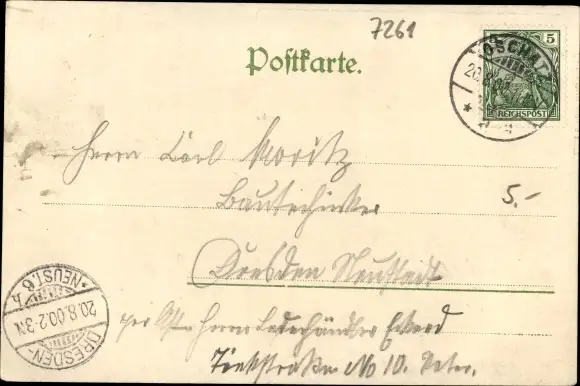 7261
Postkarte.
5
REICHSPOST
OSCHATZ
20.8.00
Herrn Carl Moritz
Bautechniker
5.-
Dresden Neustadt
per Adr. Herrn Lederhändler
Tieckstraße No 10.
DRESDEN-NEUST. 6.
20.8.00.2-3N